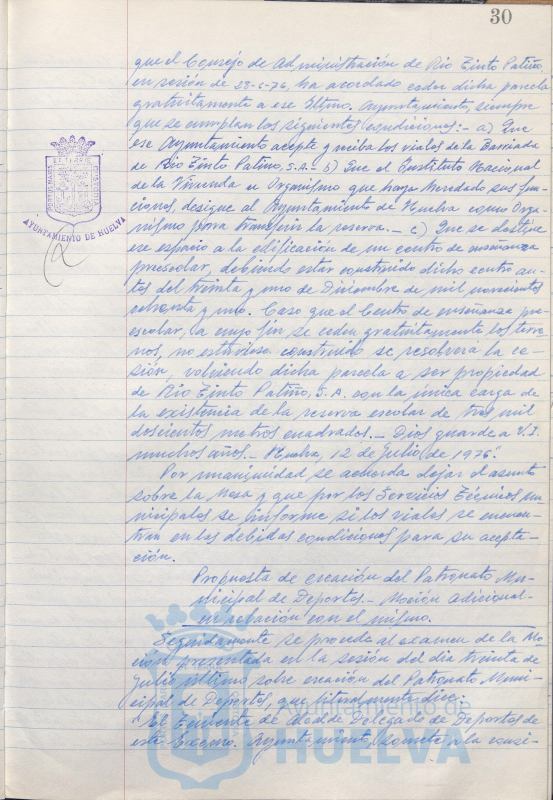 30
que el Consejo de Administración de Rio Tinto Patiño,
en sesión de 28-6-76, ha acordado ceder dicha parcela
gratuitamente a ese Iltmo. Ayuntamiento, siempre
que se cumplan las siguientes condiciones:- a) Que
ese Ayuntamiento acepte y reciba los viales de la Barriada
de Rio Tinto Patiño, S.A.- b) Que el Instituto Nacional
de la Vivienda u Organismo que haya heredado sus fun-
ciones, designe al Ayuntamiento de Huelva como Orga-
nismo para transferir la reserva.- c) Que se destine
ese espacio a la edificación de un centro de enseñanza
preescolar, debiendo estar construido dicho centro an-
tes del treinta y uno de Diciembre de mil novecientos
ochenta y uno. Caso que el Centro de enseñanza pre-
escolar, a cuyo fin se ceden gratuitamente los terre-
nos, no estuviese construido se resolverá la ce-
sión, volviendo dicha parcela a ser propiedad
de Rio Tinto Patiño, S.A. con la única carga de
la existencia de la reserva escolar de tres mil
doscientos metros cuadrados.- Dios guarde a V.I.
muchos años.- Huelva, 12 de Julio de 1976".
Por unanimidad, se acuerda dejar el asunto
sobre la Mesa y que por los Servicios Técnicos mu-
nicipales se informe si los viales se encuen-
tran en las debidas condiciones para su acepta-
ción.
Propuesta de creación del Patronato Mu-
nicipal de Deportes.- Moción adicional
en relación con el mismo.
Seguidamente se procede al examen de la Mo-
ción presentada en la sesión del dia treinta de
Julio último sobre creación del Patronato Muni-
cipal de Deportes, que literalmente dice:
"El Teniente de Alcalde Delegado de Deportes de
este Excmo. Ayuntamiento, somete a la consi-
AYUNTAMIENTO DE HUELVA
Ayuntamiento de
HUELVA